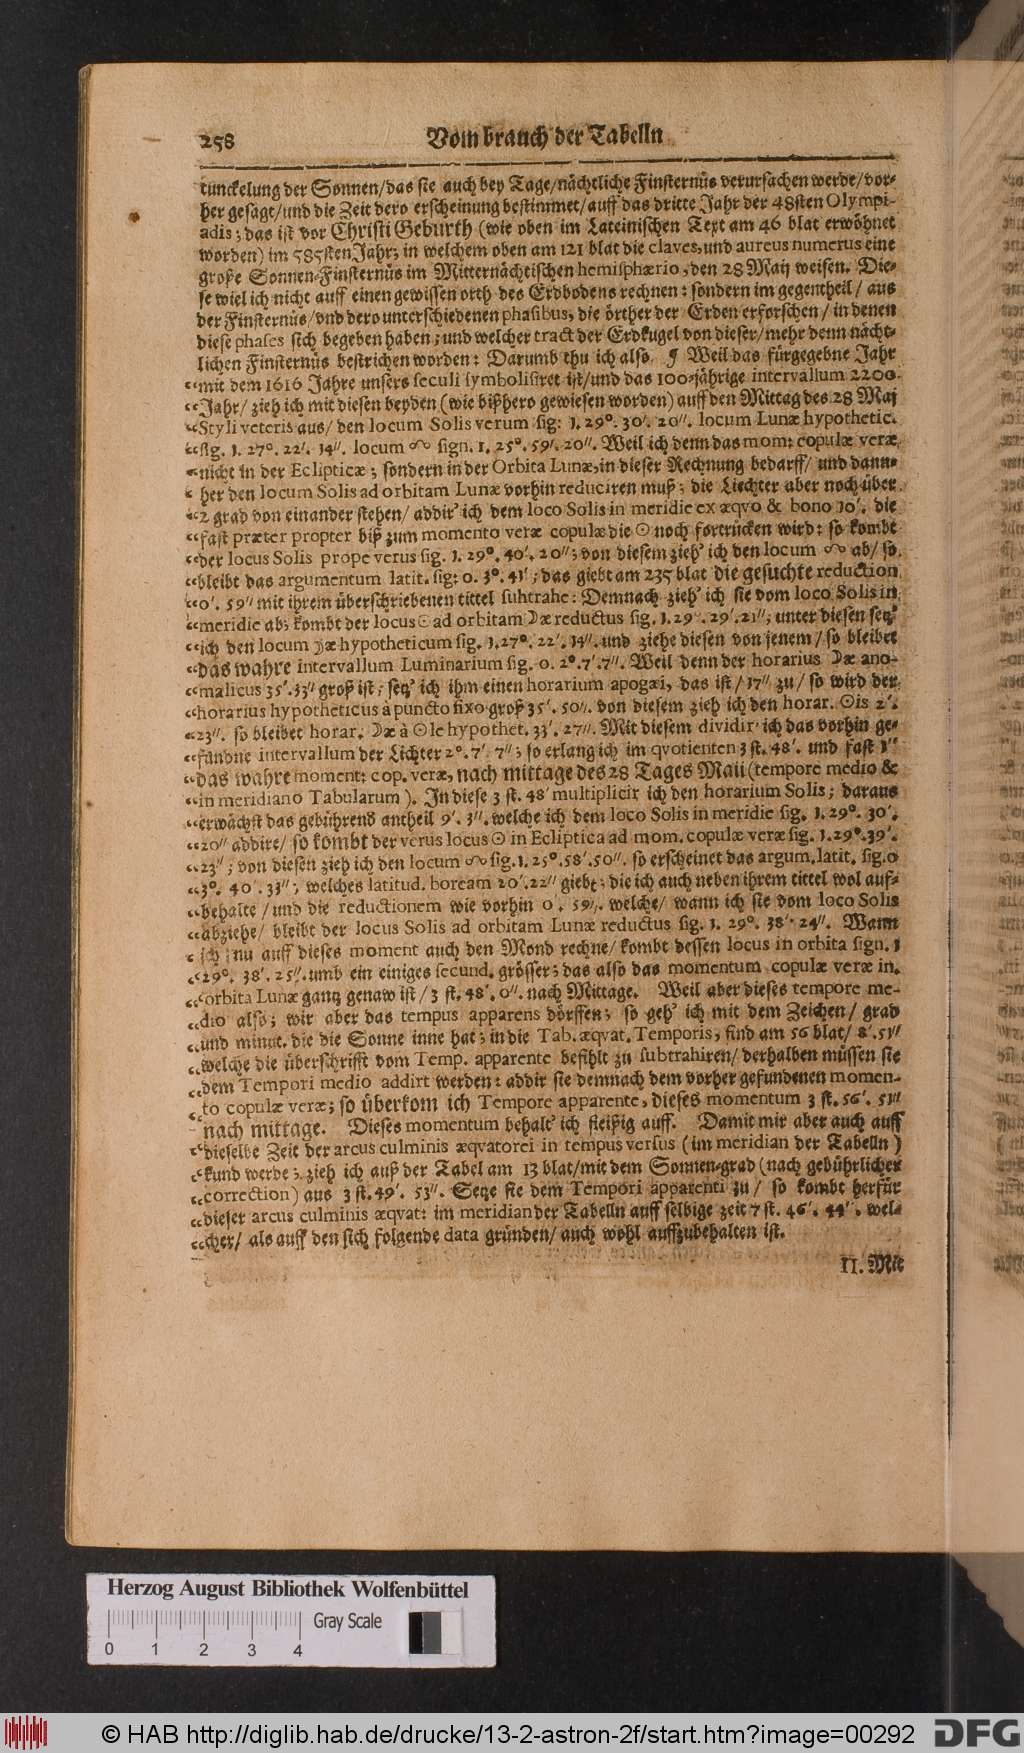 258 Vom brauch der Tabelln
tunckelung der Sonnen/das sie auch bey Tage/nächtliche Finsternüs verursachen werde/vor-
her gesagt/und die Zeit dero erscheinung bestimmet/auff das dritte Jahr der 48sten Olympi-
adis; das ist vor Christi Geburth (wie oben im Lateinischen Text am 46 blat erwöhnet
worden) im 585sten Jahr; in welchem oben am 121 blat die claves, und aureus numerus eine
große Sonnen-Finsternüs im Mitternächtischen hemisphærio, den 28 Maij weisen. Die-
se wiel ich nicht auff einen gewissen orth des Erdbodens rechnen: sondern im gegentheil/ aus
der Finsternüs/vnd dero unterschiedenen phasibus, die örther der Erden erforschen/ in denen
diese phases sich begeben haben; und welcher tract der Erdkugel von dieser/mehr denn nächt-
lichen Finsternüs bestrichen worden: Darumb thu ich also. ¶ Weil das fürgegebne Jahr
„mit dem 1616 Jahre unsers seculi symbolisiret ist/und das 100-jährige intervallum 2200
„Jahr/ zieh ich mit diesen beyden (wie bißhero gewiesen worden) auff den Mittag des 28 Maj
„Styli veteris aus/ den locum Solis verum sig: 1. 29°. 30′. 20″. locum Lunæ hypothetic.
„sig. 1. 27°. 22′. 14″. locum ☊ sign. 1. 25°. 59′. 20″. Weil ich denn das mom: copulæ veræ,
„nicht in der Eclipticæ; sondern in der Orbita Lunæ, in dieser Rechnung bedarff/ und dann-
„her den locum Solis ad orbitam Lunæ vorhin reduciren muß; die Liechter aber noch über
„2 grad von einander stehen/ addir' ich dem loco Solis in meridie ex æqvo & bono 10′. die
„fast præter propter biß zum momento veræ copulæ die ☉ noch fortrücken wird: so kombt
„der locus Solis prope verus sig. 1. 29°. 40′. 20″; von diesem zieh' ich den locum ☊ ab/ so
„bleibt das argumentum latit. sig: 0. 3°. 41′; das giebt am 235 blat die gesuchte reduction
„0′. 59″ mit ihrem überschriebenen tittel subtrahe: Demnach zieh' ich sie vom loco Solis in
„meridie ab; kombt der locus ☉ ad orbitam ☽æ reductus sig. 1. 29°. 29′. 21″; unter diesen setz'
„ich den locum ☽æ hypotheticum sig. 1. 27°. 22′. 14″. und ziehe diesen von jenem/ so bleibet
„das wahre intervallum Luminarium sig. 0. 2°. 7′. 7″. Weil denn der horarius ☽æ ano-
„malicus 35′. 33″ groß ist; setz' ich ihm einen horarium apogæi, das ist/ 17″ zu/ so wird der
„horarius hypotheticus à puncto fixo groß 35′. 50″. von diesem zieh ich den horar. ☉is 2′.
„23″. so bleibet horar. ☽æ à ☉le hypothet. 33′. 27″. Mit diesem dividir' ich das vorhin ge-
„fundne intervallum der Lichter 2°. 7′. 7″; so erlang ich im qvotienten 3 st. 48′. und fast 1″
„das wahre moment: cop. veræ, nach mittage des 28 Tages Maii (tempore medio &
„in meridiano Tabularum). In diese 3 st. 48′ multiplicir ich den horarium Solis; daraus
„erwächst das gebührend antheil 9′. 3″. welche ich dem loco Solis in meridie sig. 1. 29°. 30′.
„20″ addire/ so kombt der verus locus ☉ in Ecliptica ad mom. copulæ veræ sig. 1. 29°. 39′.
„23″; von diesen zieh ich den locum ☊ sig. 1. 25°. 58′. 50″. so erscheinet das argum. latit. sig. 0
„3°. 40′. 33″; welches latitud. boream 20′. 22″ giebt; die ich auch neben ihrem tittel wol auf-
„behalte/ und die reductionem wie vorhin 0′. 59″. welche/ wann ich sie vom loco Solis
„abziehe/ bleibt der locus Solis ad orbitam Lunæ reductus sig. 1. 29°. 38′. 24″. Wann
„ich nu auff dieses moment auch den Mond rechne/ kombt dessen locus in orbita sign. 1
„29°. 38′. 25″. umb ein einiges secund. grösser; das also das momentum copulæ veræ in
„orbita Lunæ gantz genaw ist/ 3 st. 48′. 0″. nach Mittage. Weil aber dieses tempore me-
„dio also; wir aber das tempus apparens dörffen; so geh' ich mit dem Zeichen/ grad
„und minut. die die Sonne inne hat; in die Tab. æqvat. Temporis, find am 56 blat/ 8′. 51″
„welche die überschrifft vom Temp. apparente befihlt zu subtrahiren/ derhalben müssen sie
„dem Tempori medio addirt werden: addir sie demnach dem vorher gefundenen momen-
„to copulæ veræ; so überkom ich Tempore apparente, dieses momentum 3 st. 56′. 51″
„nach mittage. Dieses momentum behalt' ich fleißig auff. Damit mir aber auch auff
„dieselbe Zeit der arcus culminis æqvatorei in tempus versus (im meridian der Tabelln)
„kund werde; zieh ich auß der Tabel am 13 blat/mit dem Sonnen-grad (nach gebührlicher
„correction) aus 3 st. 49′. 53″. Setze sie dem Tempori apparenti zu/ so kombt herfür
„dieser arcus culminis æqvat: im meridian der Tabelln auff selbige zeit 7 st. 46′. 44″. wel-
„cher/ als auff den sich folgende data gründen/ auch wohl auffzubehalten ist.
II. Mit
Herzog August Bibliothek Wolfenbüttel
Gray Scale
0 1 2 3 4
© HAB http://diglib.hab.de/drucke/13-2-astron-2f/start.htm?image=00292 DFG